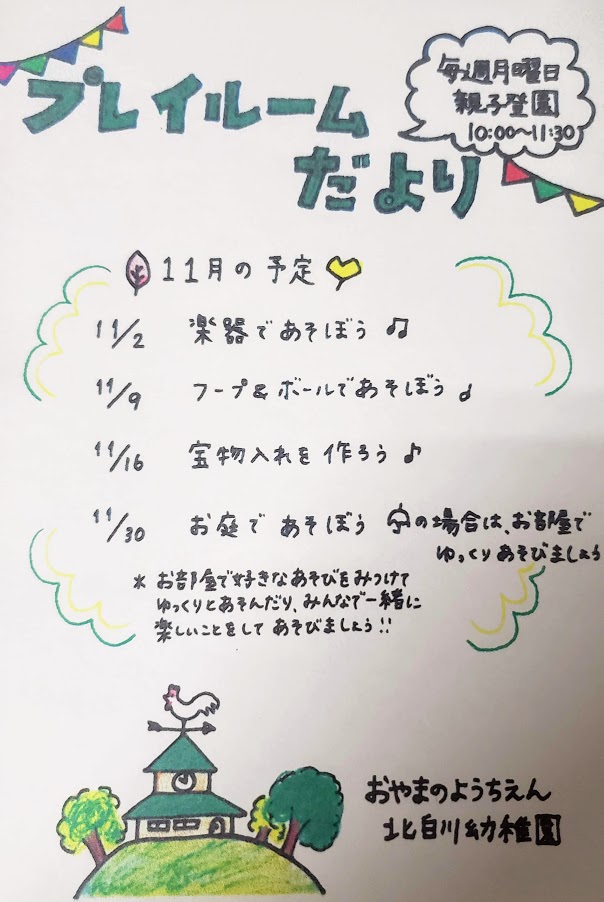 プレイルーム
だより
毎週月曜日
親子登園
10:00〜11:30
11月の予定
11/2 楽器であそぼう♫
11/9 フープ&ボールであそぼう♩
11/16 宝物入れを作ろう♪
11/30 お庭であそぼう の場合は、お部屋で
ゆっくりあそびましょう
* お部屋で好きなあそびをみつけて
ゆっくりとあそんだり、みんなで一緒に
楽しいことをしてあそびましょう!!
おやまのようちえん
北白川幼稚園